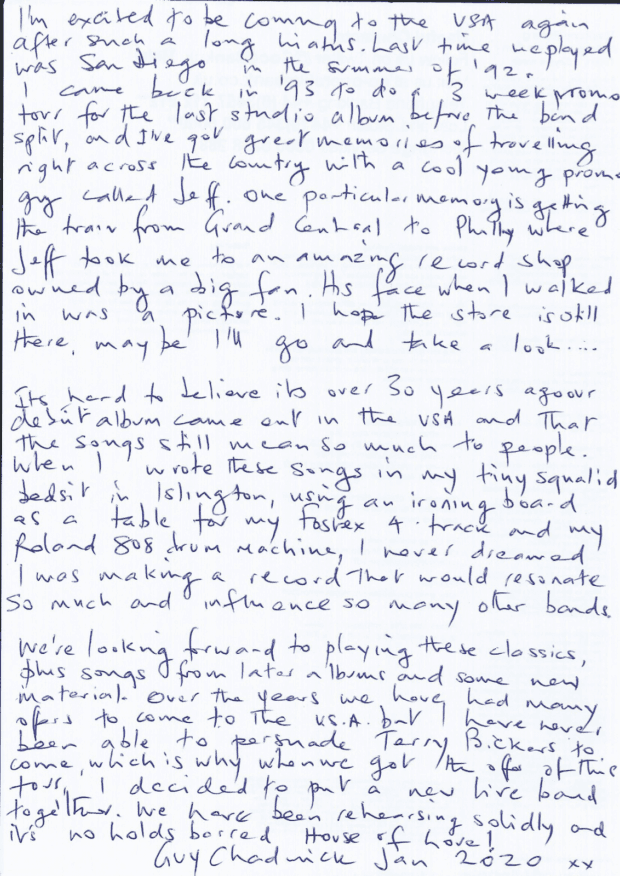 I'm excited to be coming to the USA again
after such a long hiatus. Last time we played
was San Diego in the summer of '92.
I came back in '93 to do a 3 week promo
tour for the last studio album before the band
split, and I've got great memories of travelling
right across the country with a cool young promo
guy called Jeff. One particular memory is getting
the train from Grand Central to Philly where
Jeff took me to an amazing record shop
owned by a big fan. His face when I walked
in was a picture. I hope the store is still
there, maybe I'll go and take a look....
Its hard to believe its over 30 years ago our
debut album came out in the USA and that
the songs still mean so much to people.
When I wrote these songs in my tiny squalid
bedsit in Islington, using an ironing board
as a table for my Fostex 4 track and my
Roland 808 drum machine, I never dreamed
I was making a record that would resonate
so much and influence so many other bands.
We're looking forward to playing these classics,
plus songs from later albums and some new
material. Over the years we have had many
offers to come to the U.S.A. but I have never
been able to persuade Terry Bickers to
come, which is why when we got the offer of this
tour, I decided to put a new live band
together. We have been rehearsing solidly and
it's no holds barred House of Love!
Guy Chadwick Jan 2020 xx